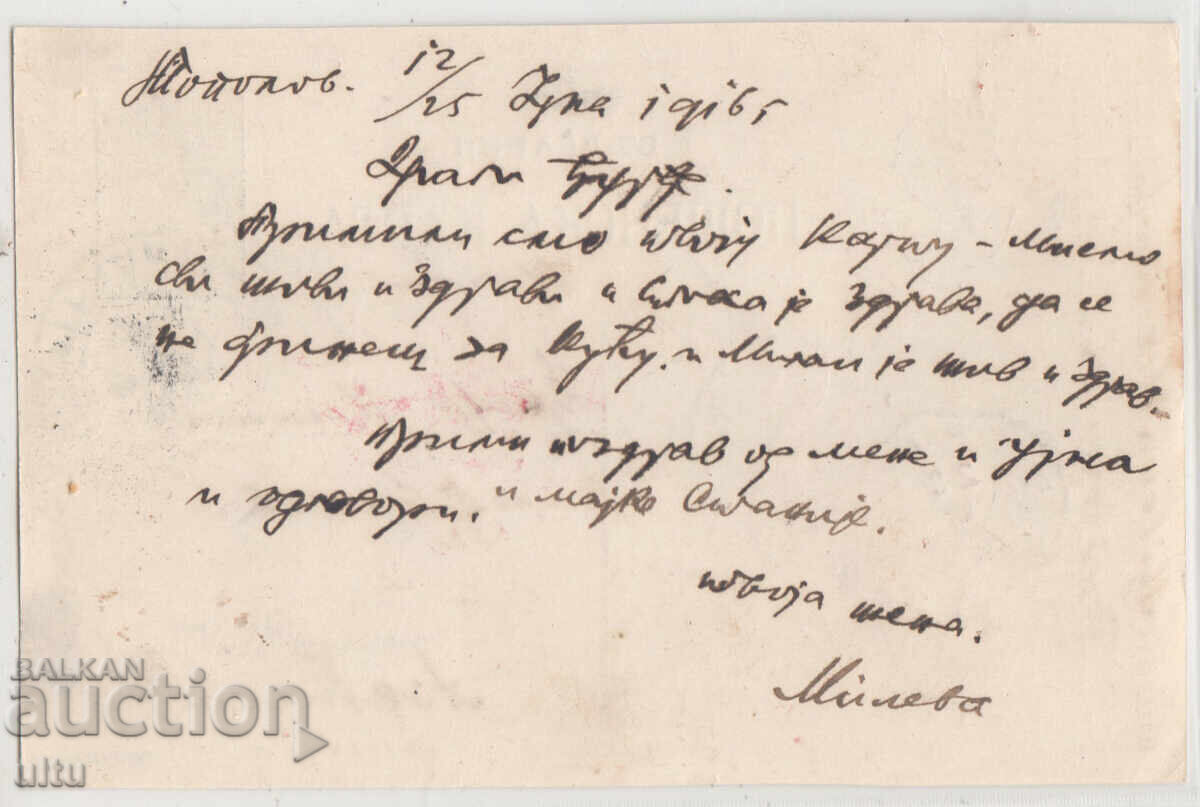 Тополов. 12/25 Јуна 1916
Драги
Примили смо твоју Карту – Мисмо
сви живи и здрави и Стока је здрава, да се
не бринеш за Кућу. и Милан је жив и здрав.
Прими поздрав од мене и Ујна
и одговори. и мајке Станије.
твоја жена.
Милева
BALKAN
auction
ultu